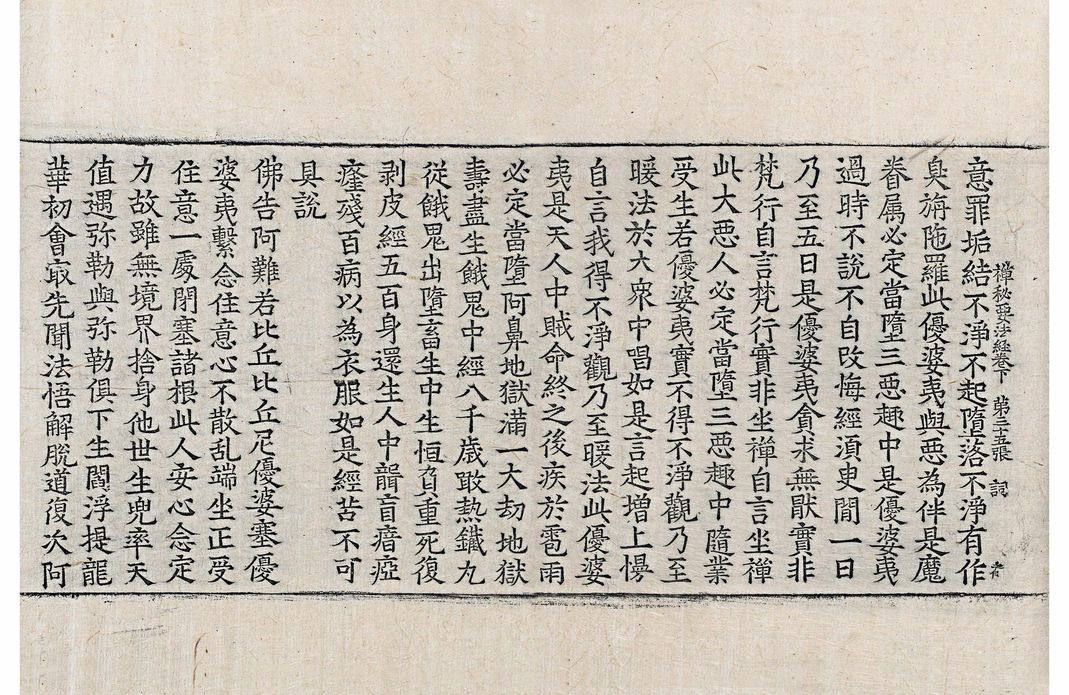 禪秘要法經卷下 第三十五張 詞
者
意罪垢結不淨不起墮落不淨有作
臭旃陁羅此優婆夷與惡為伴是魔
眷属必定當墮三惡趣中是優婆夷
過時不說不自改悔經須臾閒一日
乃至五日是優婆夷貪求無猒實非
梵行自言梵行實非坐禪自言坐禪
此大惡人必定當墮三惡趣中隨業
受生若優婆夷實不得不淨觀乃至
暖法於大衆中唱如是言起增上慢
自言我得不淨觀乃至暖法此優婆
夷是天人中賊命終之後疾於雹雨
必定當墮阿鼻地獄滿一大劫地獄
壽盡生餓鬼中經八千歲噉熱鐵丸
從餓鬼出墮畜生中生恒負重死復
剥皮經五百身還生人中聾盲瘖瘂
癃殘百病以為衣服如是經苦不可
具說
佛告阿難若比丘比丘尼優婆塞優
婆夷繫念住意心不散乱端坐正受
住意一處閉塞諸根此人安心念定
力故雖無境界捨身他世生兜率天
值遇弥勒與弥勒俱下生閻浮提龍
華初會最先聞法悟解脫道復次阿